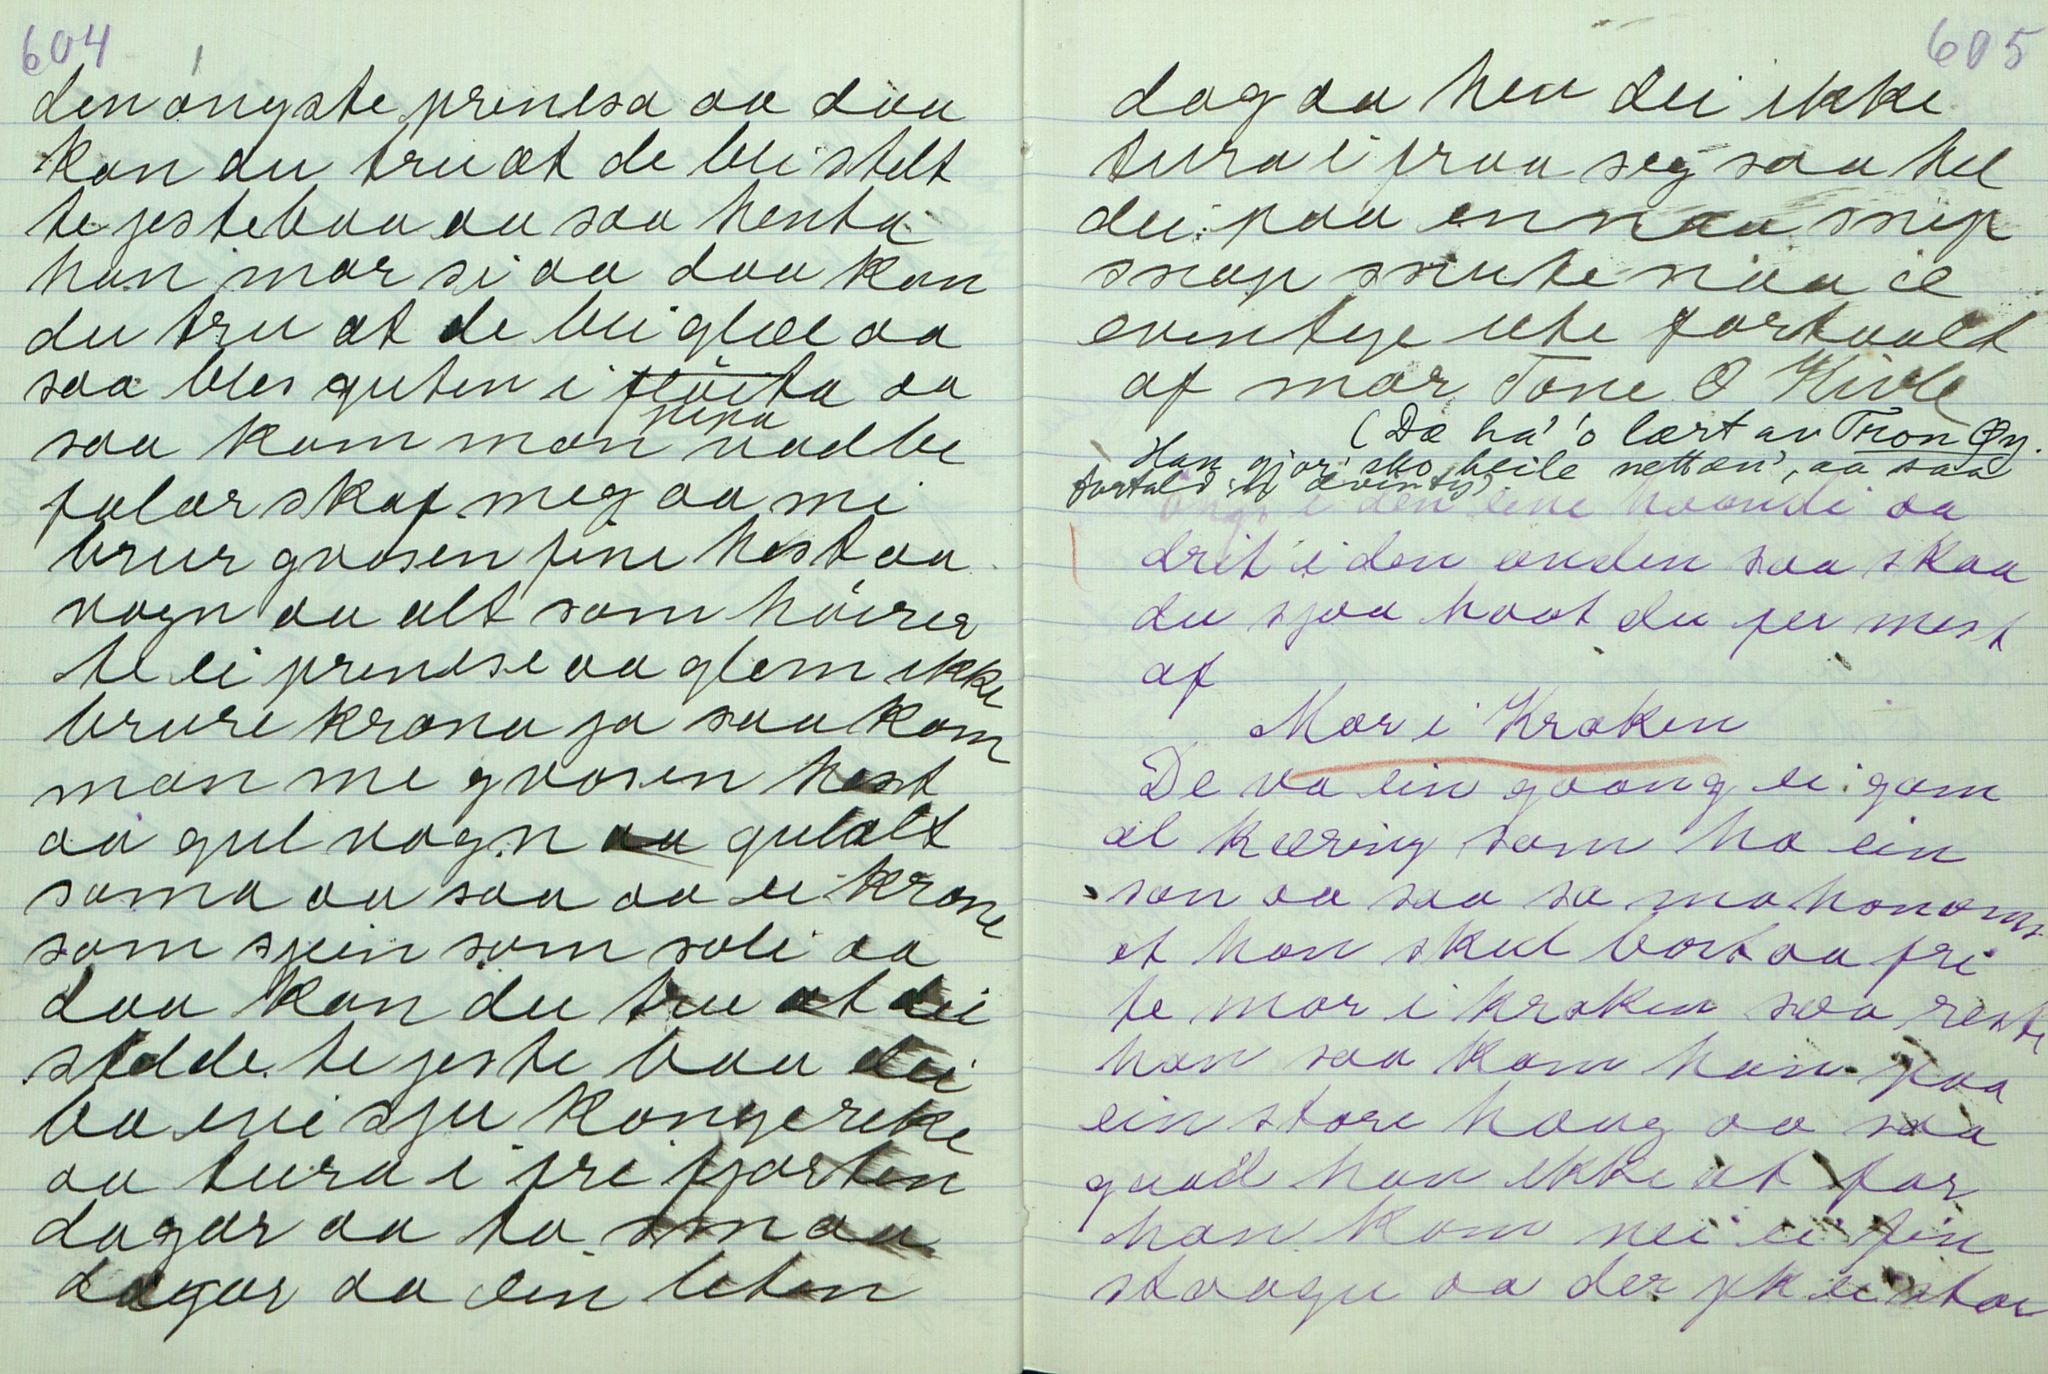 604
den øngste prinlsa aa daa
kan du tru æt de blei stelt
te jestebaa aa saa henta
han mor si aa daa kan
du tru at de blei glæ aa
saa bles guten i fløita aa
pipa
saa kom man vadbe
falær skaf meg aa mi
brur graasen fine hest aa
vogn aa alt som høirer
te ei prinlse aa glem ikke
brurekrona ja saa kom
man me graasen hest
aa gul vogn aa gul alt
sama aa saa aa ei krone
som sjein som soli aa
daa kan du tru at dei
stelde te jeste baa dei
ba ivi sju kongereke
aa tura i fri fjorten
dagar aa to smaa
dagar aa ein liten
605
dag aa hev dei ikke
tura i fraa seg saa hel
dei paa en naa snip
snap snute naa æ
eventye ute fortaalt
af mor Tone O Kivle
(Dæ ha' 'o lært av Tron Øy.
Han gjor' sko heile nettæn', aa saa
fortald'n æventy)
i den eine haandi aa
drit i den anden saa skaa
du sjaa haat du fer mest
af
Mor i Kroken
De va ein gaang ei gam
al kæring som ha ein
son aa saa sa ma honom
at han skul bort aa fri
te mor i kroken saa reste
han saa kom han paa
ein store haug aa saa
gaad han ikke at far
han kom nei ei fin
staagu aa der fek ei stor